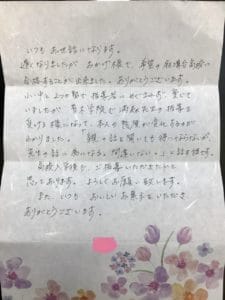 いつもお世話になっております。
遅くなりましたが おかげ様で、希望の 高校に
合格することが出来ました。ありがとうございます。
小・中と 塾で 指導者に めぐまれず、苦しんで
いましたが 学院で 先生の指導を
受ける様になって、本人の 変化するのが
わかりました。「親の話を聞いても 待ってないが、
先生の話は 為になる。間違いない。」と話す様です。
高校入学後も、ご指導いただきたいと
思っております。よろしくお願い致します。
また、いつも おいしい お菓子を いただき
ありがとうございます。